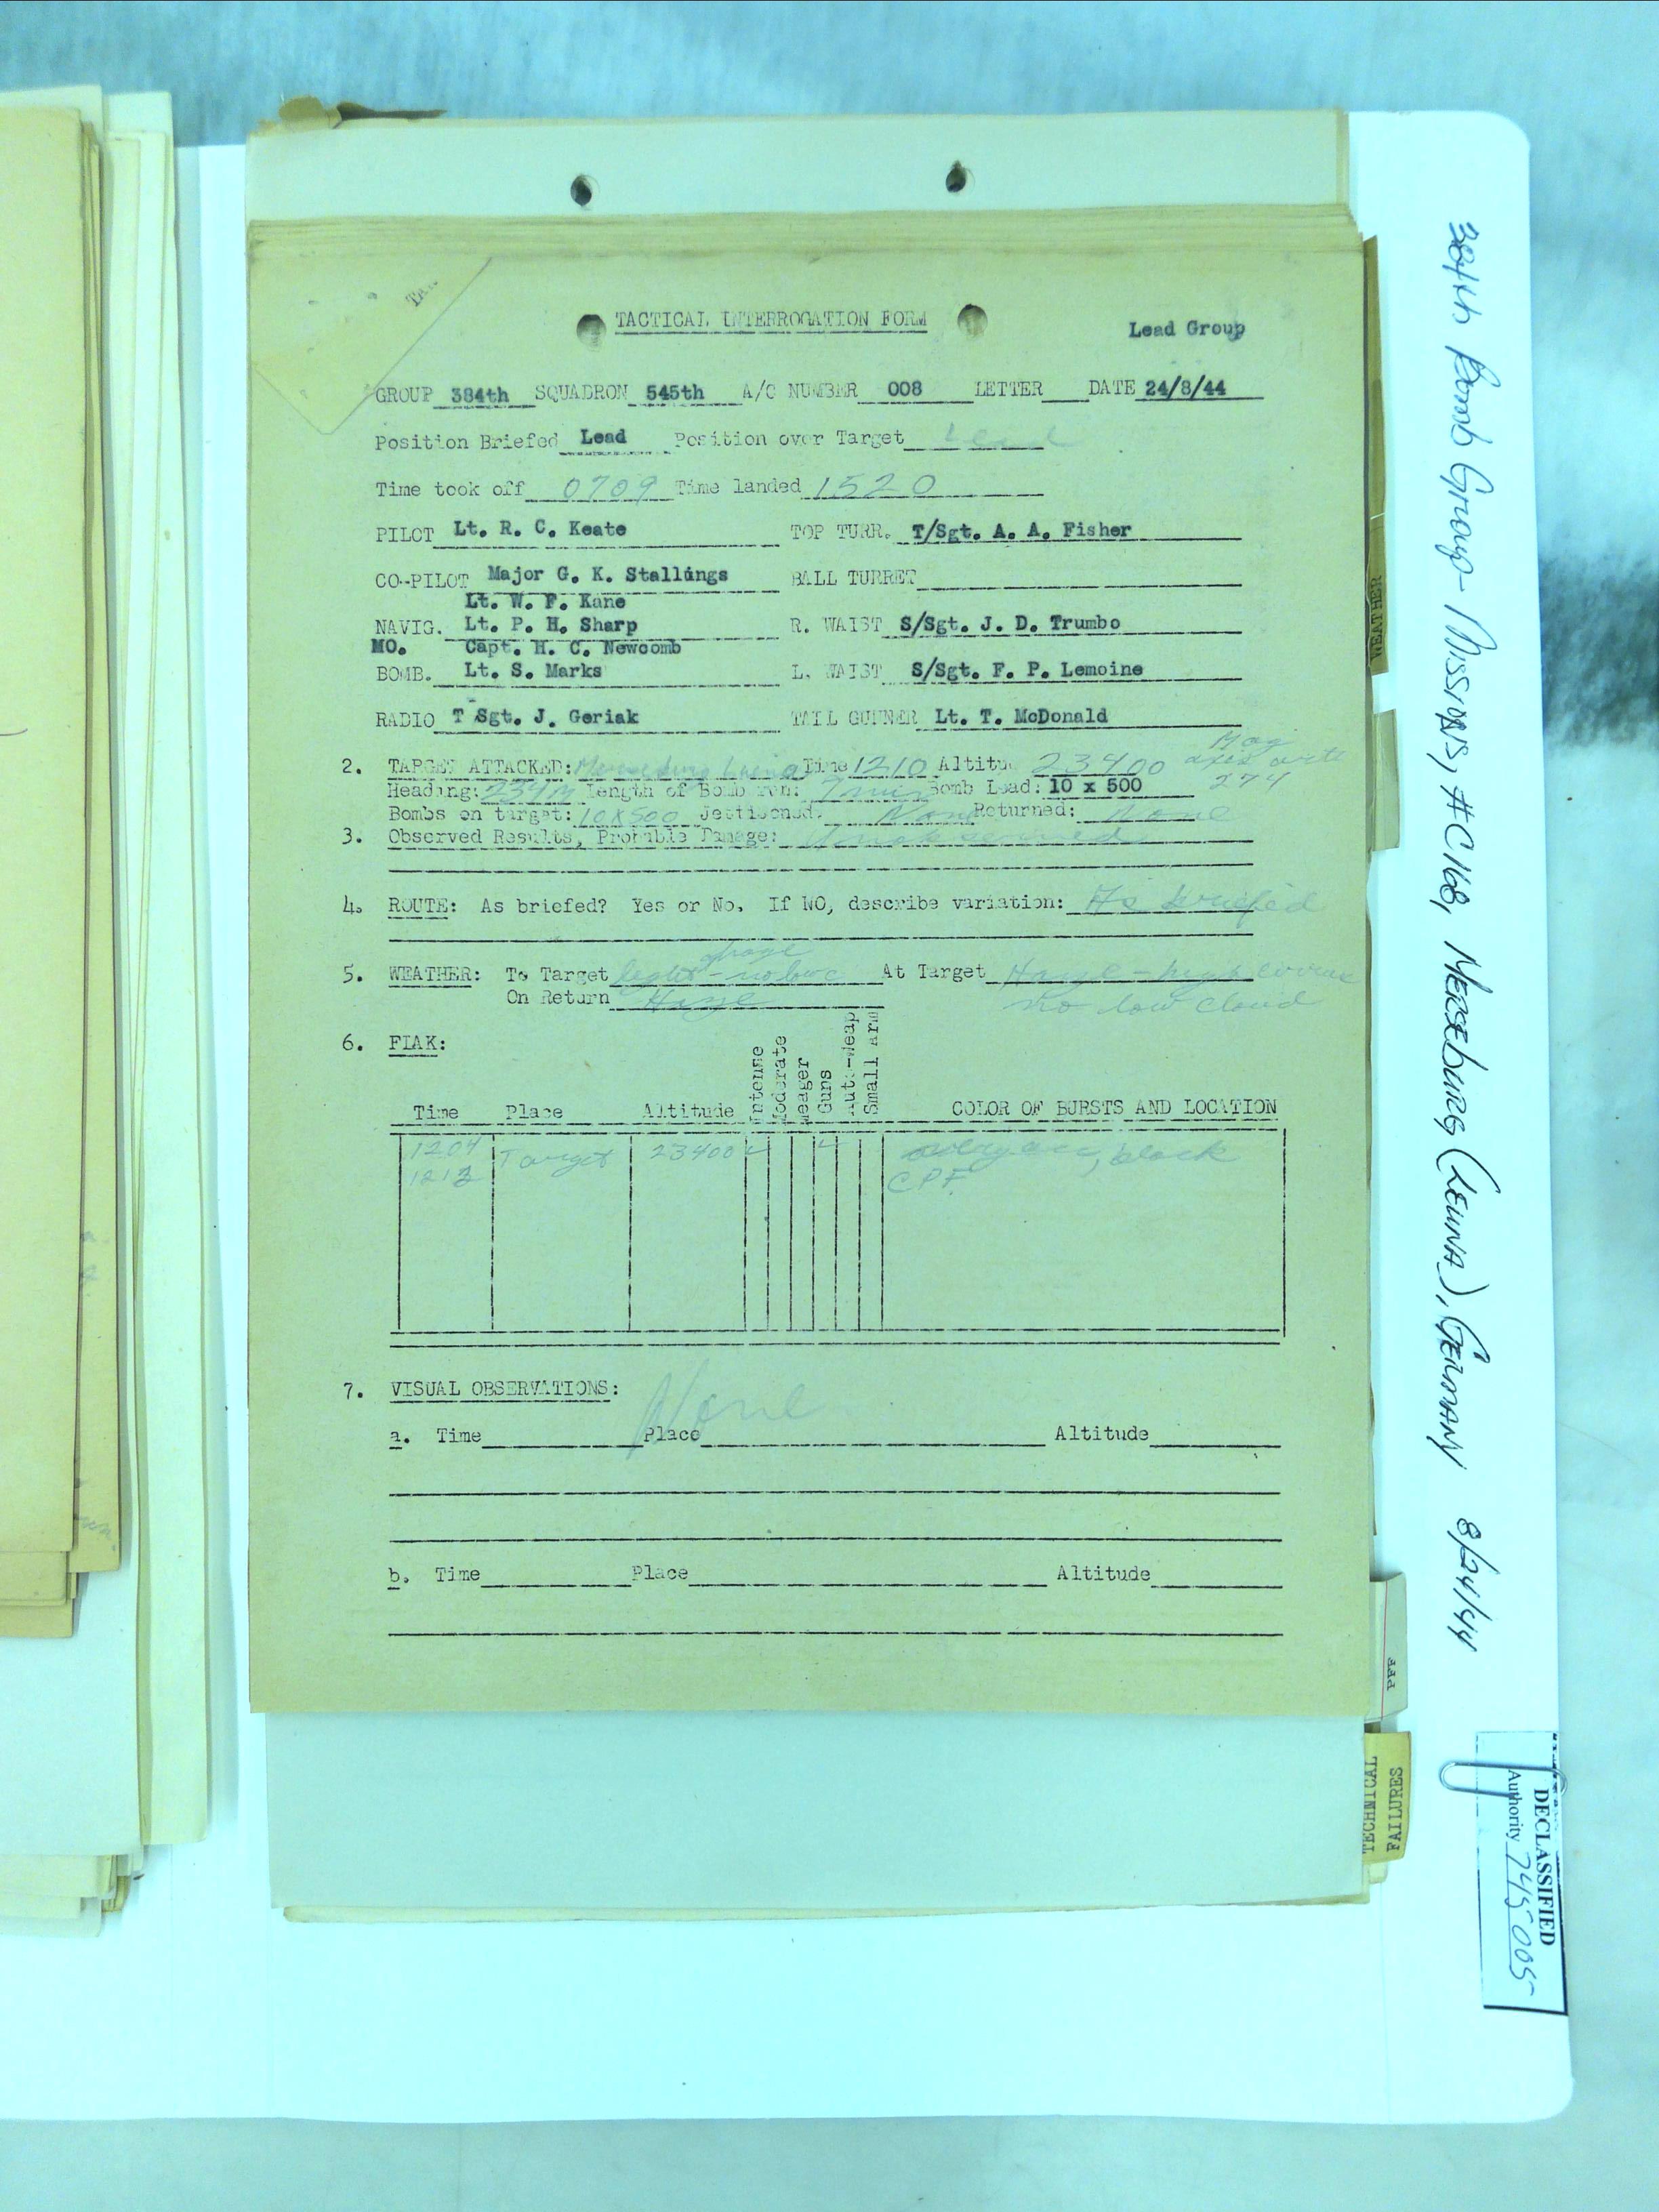 TACTICAL INTERROGATION FORM
Lead Group
GROUP 384th SQUADRON 545th A/C NUMBER 008 LETTER DATE 24/8/44
Position Briefed Lead Position over Target Lead
Time took off 0709 Time landed 1520
PILOT Lt. R. C. Keate TOP TURR. T/Sgt. A. A. Fisher
CO-PILOT Major G. K. Stallings BALL TURRET
Lt. W. F. Kane
NAVIG. Lt. P. H. Sharp R. WAIST S/Sgt. J. D. Trumbo
MO. Capt. H. C. Newcomb
BOMB. Lt. S. Marks L. WAIST S/Sgt. F. P. Lemoine
RADIO T Sgt. J. Geriak TAIL GUNNER Lt. T. McDonald
Mag
2. TARGET ATTACKED: Merseburg Time 1210 Altitu 23400 axis
Heading: Length of Bomb run: 7 min Bomb Load: 10 x 500 274
Bombs on target: 10x500 Jettisoned: None Returned: None
3. Observed Results, Probable Damage:
4. ROUTE: As briefed? Yes or No. If NO, describe variation: As briefed
5. WEATHER: To Target light haze - no low c At Target Haze - high cirrus
On Return Haze no low cloud
6. FlAK:
Time Place Altitude Intense Moderate Meager Guns Auto-Weap Small arm COLOR OF BURSTS AND LOCATION
1204 Target 23400 ✓ ✓ black
1213 CPF
7. VISUAL OBSERVATIONS: None
a. Time Place Altitude
b. Time Place Altitude
WEATHER
PFF
TECHNICAL
FAILURES
384th Bomb Group - Missions, #C168, Merseburg (Leuna), Germany 8/24/44
DECLASSIFIED
Authority 745005